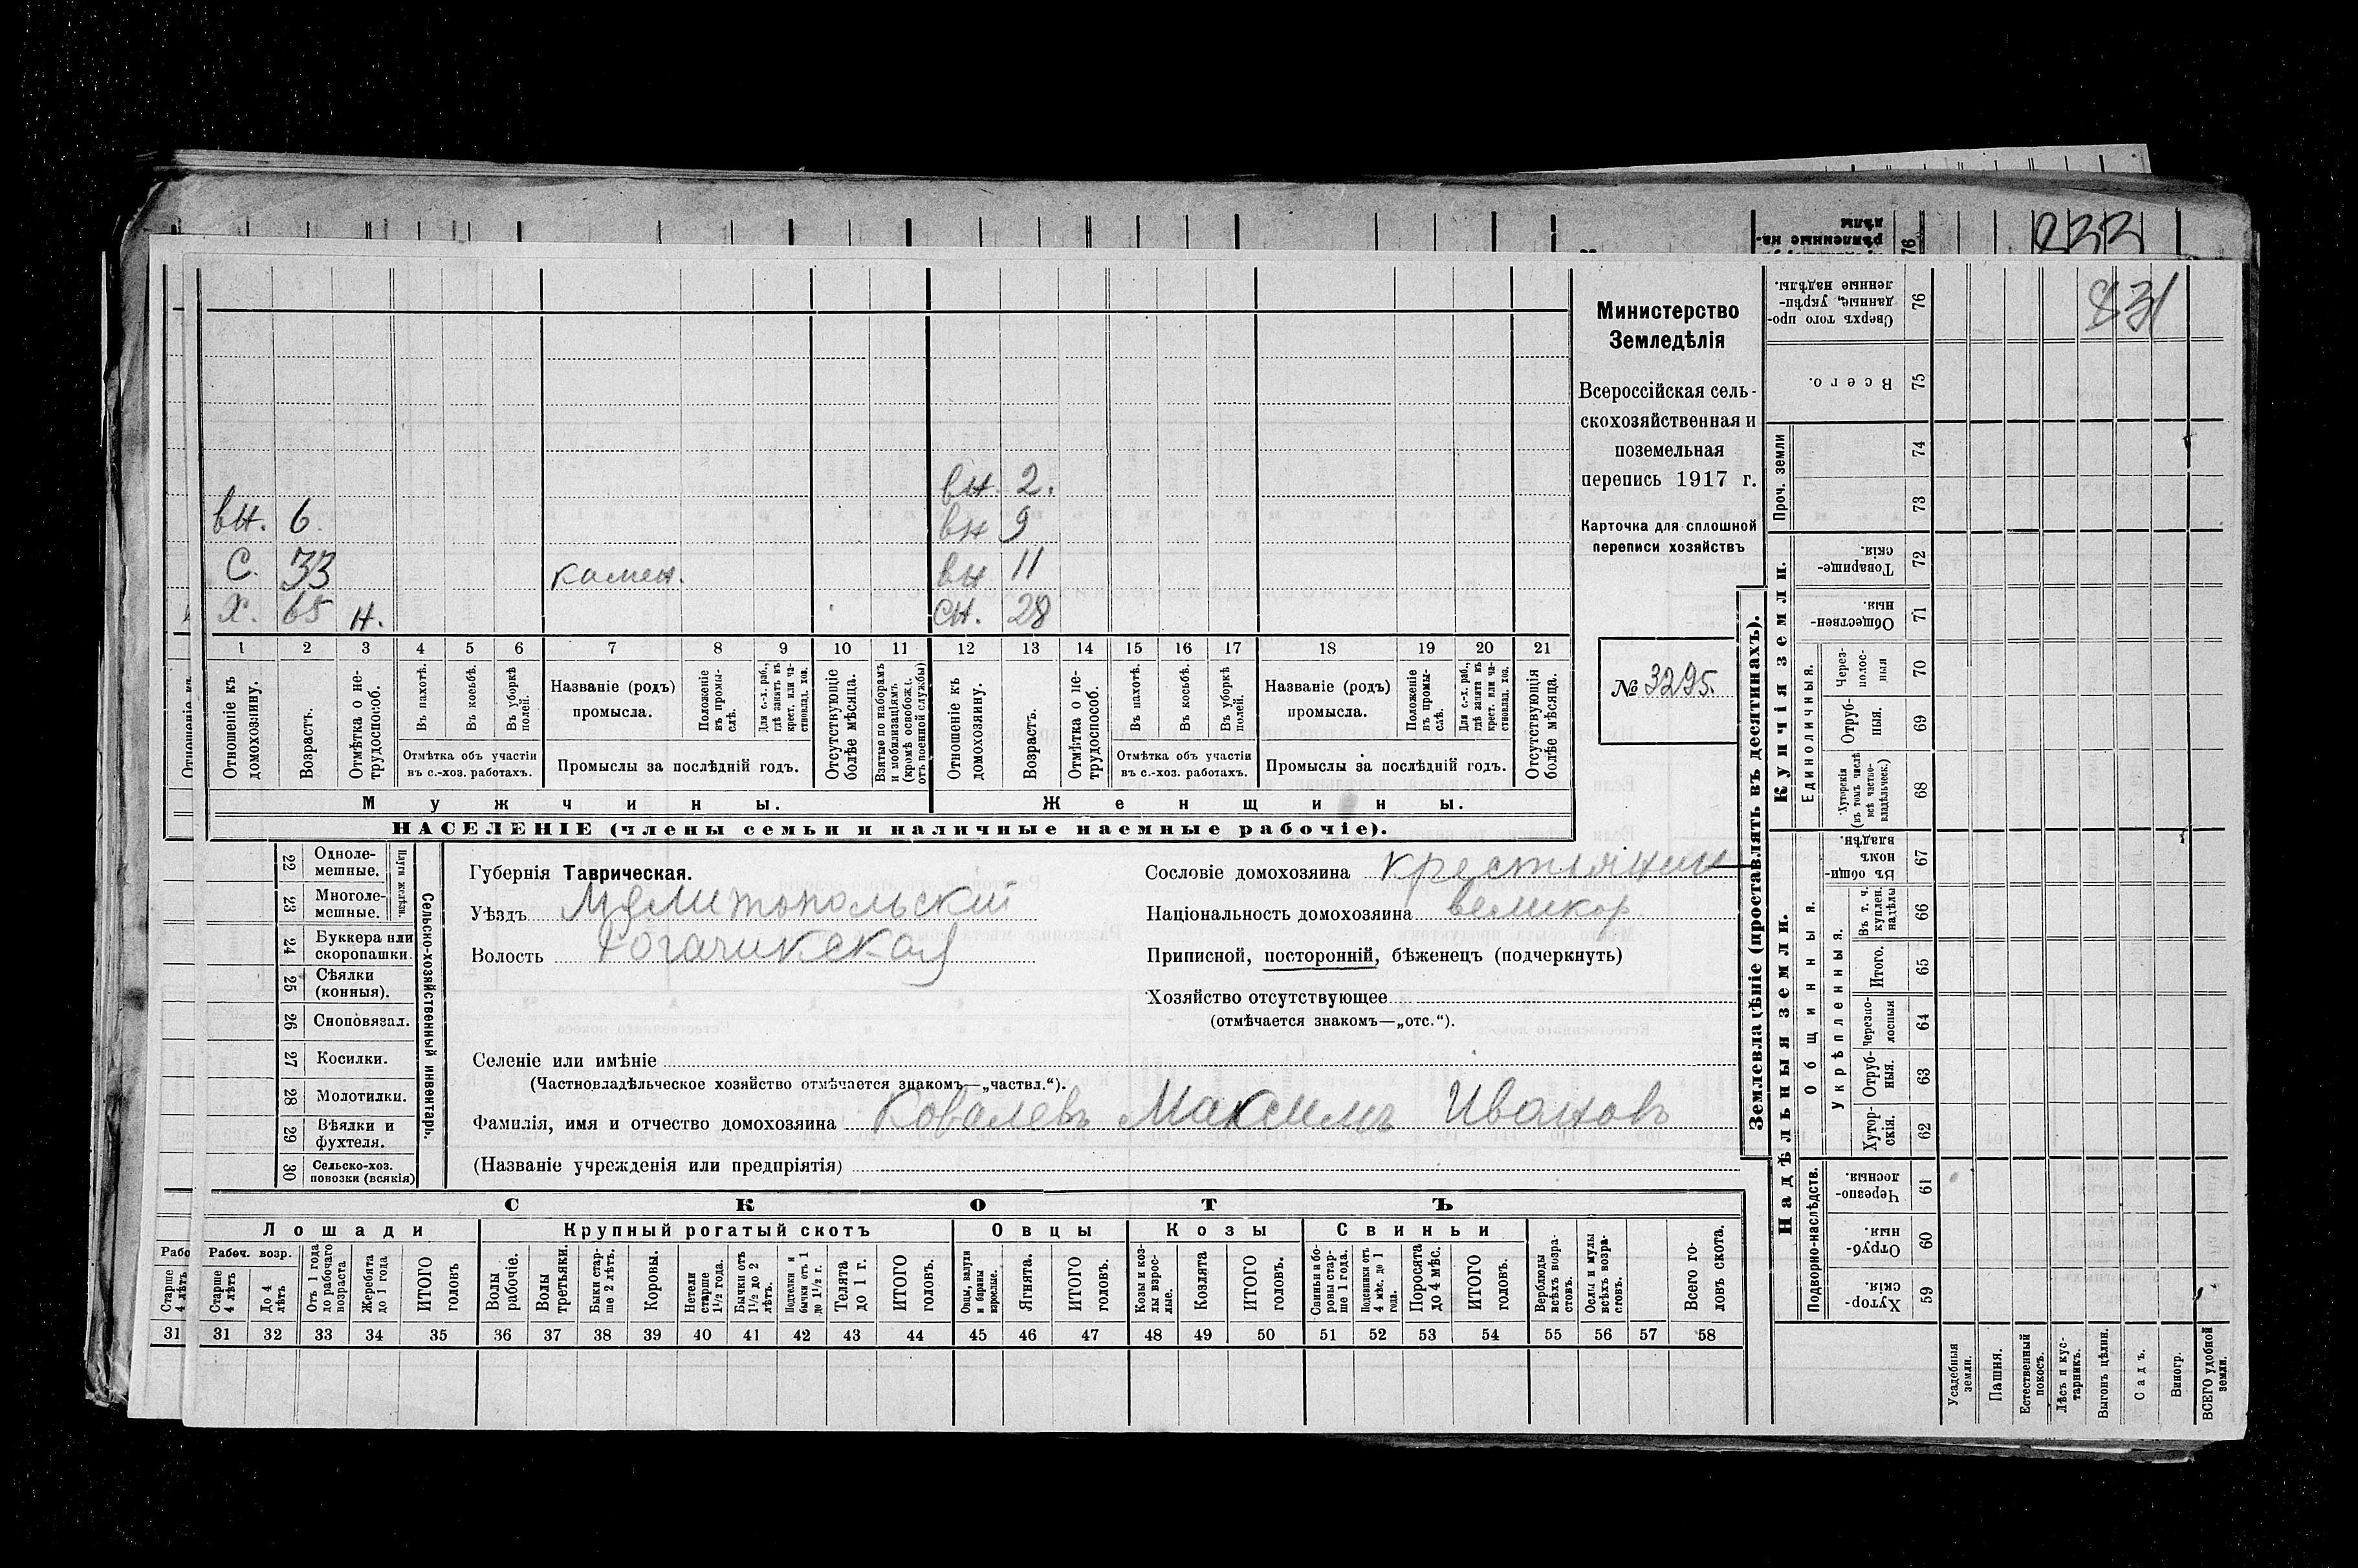 831
вн. 2.
вн. 6. вн 9
С. 33 камен. вн 11
Х. 65 н. сн. 28
1 2 3 4 5 6 7 8 9 10 11 12 13 14 15 16 17 18 19 20 21
Отношеніе къ домохозяину.
Возрастъ.
Отмѣтка о нетрудоспособ.
Въ пахотѣ.
Въ косьбѣ.
Въ уборкѣ полей.
Отмѣтка объ участіи
въ с.-хоз. работахъ.
Названіе (родъ)
промысла.
Положеніе въ промыслѣ.
Для с.-х. раб., гдѣ занятъ въ крест. или частновлад. хоз.
Промыслы за послѣдній годъ.
Отсутствующіе болѣе мѣсяца.
Взятые по наборамъ и мобилизаціямъ (кромѣ освобожд. отъ военной службы)
Отношеніе къ домохозяину.
Возрастъ.
Отмѣтка о нетрудоспособ.
Въ пахотѣ.
Въ косьбѣ.
Въ уборкѣ полей.
Отмѣтка объ участіи
въ с.-хоз. работахъ.
Названіе (родъ)
промысла.
Положеніе въ промыслѣ.
Для с.-х. раб., гдѣ занята въ крест. или частновлад. хоз.
Промыслы за послѣдній годъ.
Отсутствующія болѣе мѣсяца.
Мужчины. Женщины.
НАСЕЛЕНІЕ (члены семьи и наличные наемные рабочіе).
Министерство
Земледѣлія
Всероссійская сель-
скохозяйственная и
поземельная
перепись 1917 г.
Карточка для сплошной
переписи хозяйствъ
№ 3295.
Сельско-хозяйственный инвентарь.
Плуги желѣзн.
22 Одноле-
мешные.
23 Многоле-
мешные.
24 Буккера или
скоропашки.
25 Сѣялки
(конныя).
26 Сноповязал.
27 Косилки.
28 Молотилки.
29 Вѣялки и
фухтеля.
30 Сельско-хоз.
повозки (всякія)
Губернія Таврическая.
Уѣздъ Мелитопольскій
Волость Рогачикская
Сословіе домохозяина крестьянин
Національность домохозяина великор.
Приписной, посторонній, бѣженецъ (подчеркнуть)
Хозяйство отсутствующее
(отмѣчается знакомъ—„отс.“).
Селеніе или имѣніе
(Частновладѣльческое хозяйство отмѣчается знакомъ—„частвл.“).
Фамилія, имя и отчество домохозяина Ковалевъ Максимъ Ивановъ
(Названіе учрежденія или предпріятія)
СКОТЪ
Лошади Крупный рогатый скотъ Овцы Козы Свиньи
Рабоч. возр.
Старше 4 лѣтъ
До 4 лѣтъ
Отъ 1 года до рабочаго возраста
Жеребята до 1 года
ИТОГО головъ
Волы рабочіе.
Волы третьяки.
Быки старше 2 лѣтъ.
Коровы.
Нетели старше 1½ года.
Бычки отъ 1½ до 2 лѣтъ.
Подтелки и бычки отъ 1 до 1½ г.
Телята до 1 г.
ИТОГО головъ.
Овцы, валухи и бараны взрослые.
Ягнята.
ИТОГО головъ.
Козы и козлы взрослые.
Козлята
ИТОГО головъ.
Свиньи и боровы старше 1 года.
Подсвинки отъ 4 мѣс. до 1 года.
Поросята до 4 мѣс.
ИТОГО головъ.
Верблюды всѣхъ возрастовъ.
Ослы и мулы всѣхъ возрастовъ.
Всего головъ скота.
31 32 33 34 35 36 37 38 39 40 41 42 43 44 45 46 47 48 49 50 51 52 53 54 55 56 57 58
Землевладѣніе (проставлять въ десятинахъ).
Купчія земли.
Надѣльныя земли.
Сверхъ того проданные, укрѣпленные надѣлы. 76
Всего. 75
Проч. земли 74 73
Товарищескія. 72
Общественныя. 71
Единоличныя.
Черезполосныя 70
Отрубныя. 69
Хуторскія (въ томъ числѣ всѣ частновладѣльческ.) 68
Общинныя.
Въ общинномъ владѣн. 67
Укрѣпленныя.
Въ т. ч. куплен. надѣлы 66
Итого. 65
Черезполосныя 64
Отрубныя. 63
Хуторскія. 62
Подворно-наслѣдств.
Черезполосныя. 61
Отрубныя. 60
Хуторскія. 59
Усадебныя земли.
Пашня.
Естественный покосъ.
Лѣсъ и кустарникъ.
Выгонъ цѣлин.
Садъ.
Виногр.
ВСЕГО удобной земли.